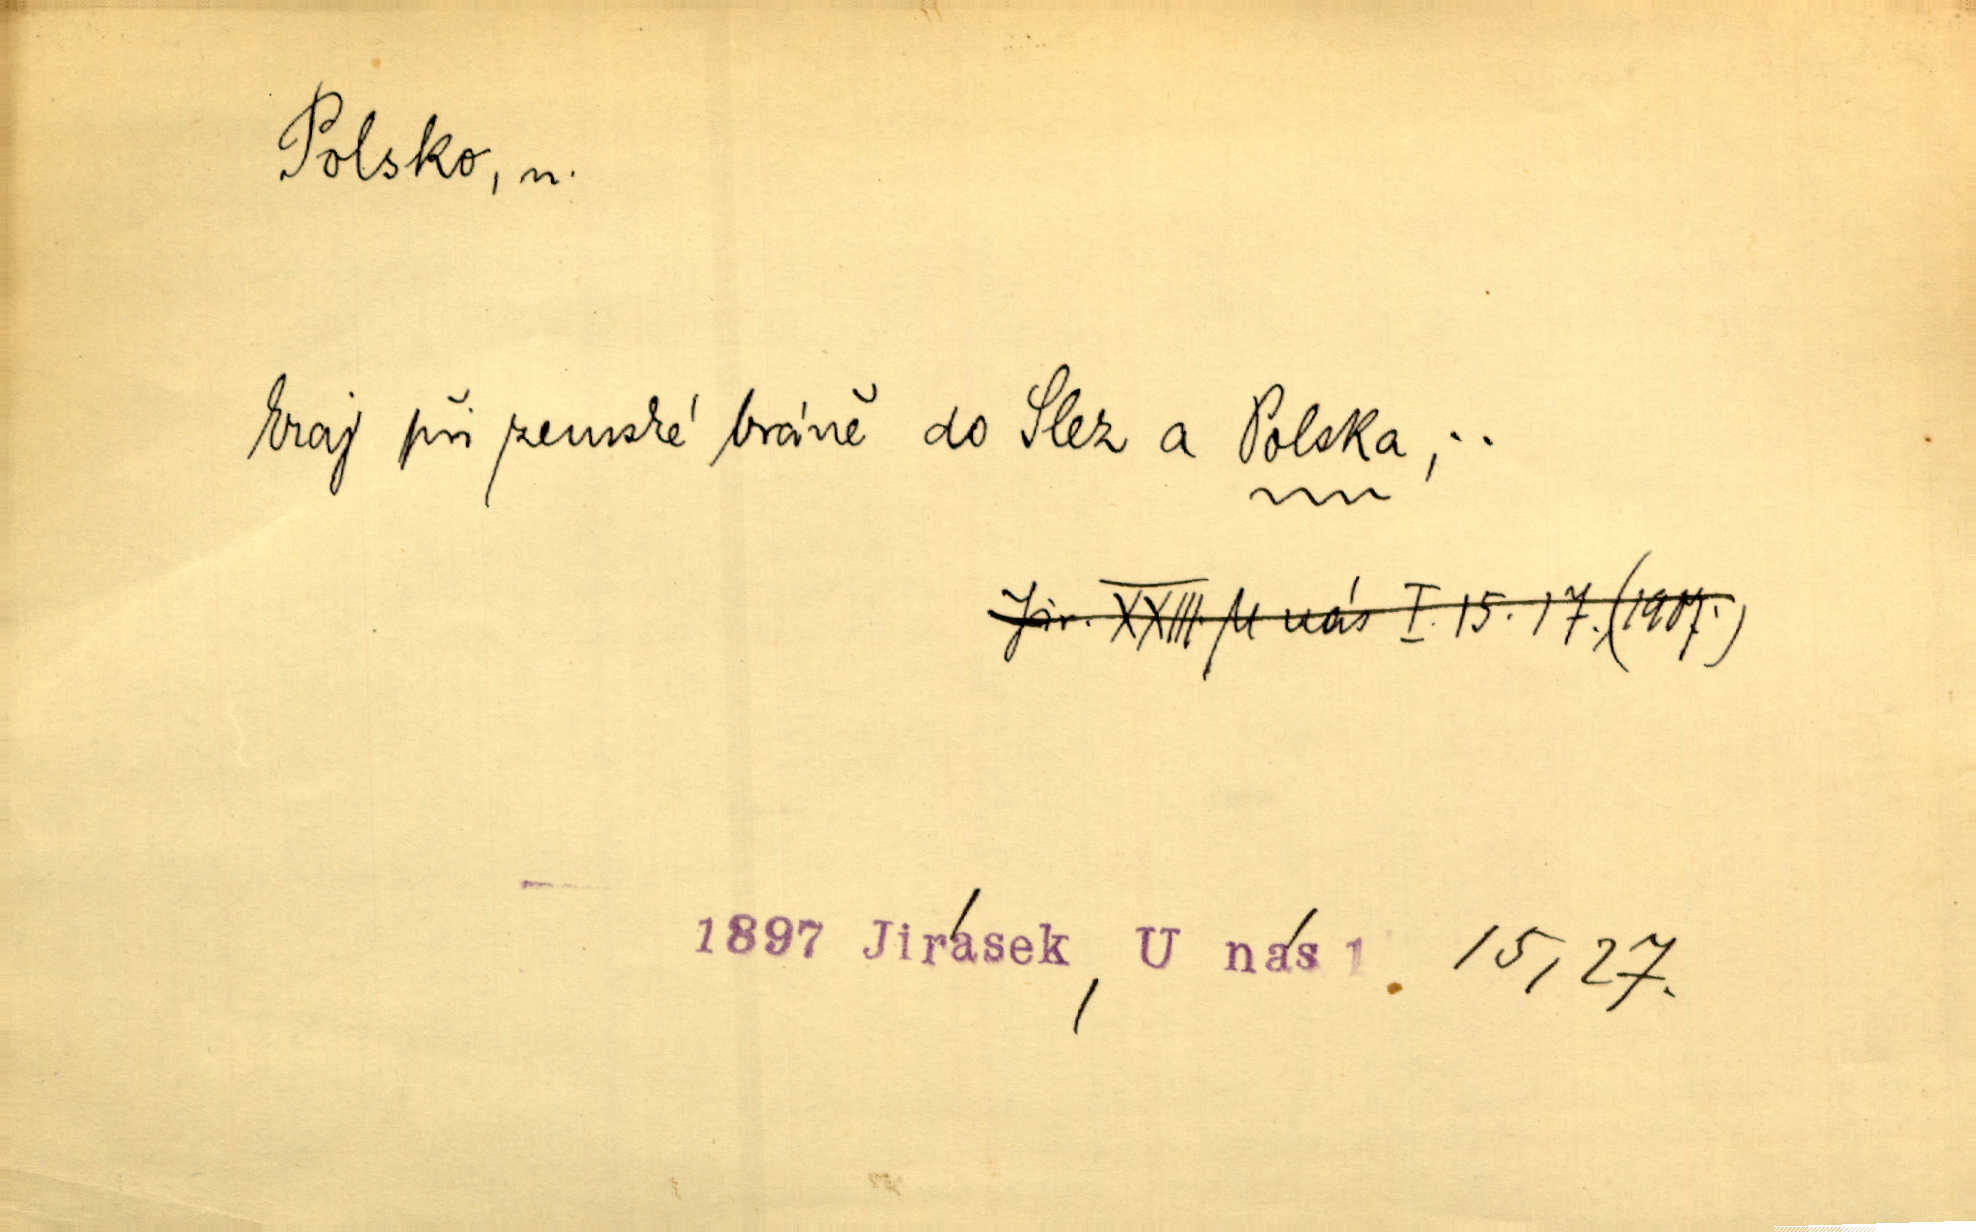 Polsko, n.
kraj při zemské bráně do Slez a Polska, ..
Jir. XXIII. U nás I. 15. 17. (1907.)
1897 Jirásek, U nás 1. 15, 27.